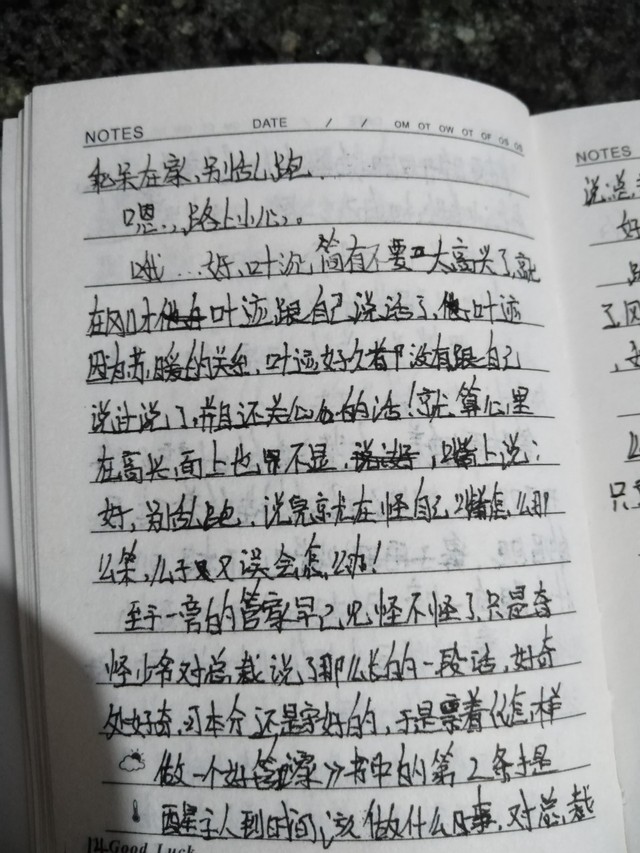 NOTES DATE / / OM OT OW OT OF OS OS
乖呆在家、别乱跑.
嗯,路上小心。
哦...好,叶沉,简有不要太高兴了,就
在刚才叶迹跟自己说话了,叶迹
因为苏暖的关系,叶迹好久着都没有跟自己
说过说了,并且还关心的话!就算心里
在高兴,面上也不显,嘴上说:
好,别乱跑,说完就在怪自己,嘴怎么那
么笨,儿子又误会怎么办!
至于一旁的管家早已见怪不怪了,只是奇
怪少爷对总裁说了那么长的一段话,好奇
处好奇,可本分还是守好的,于是秉着《怎样
做一个好管家》书中的第2条于是
醒主人到时间,该做什么事,对总裁
Good Luck
NOTES
说,总
好
了,
只